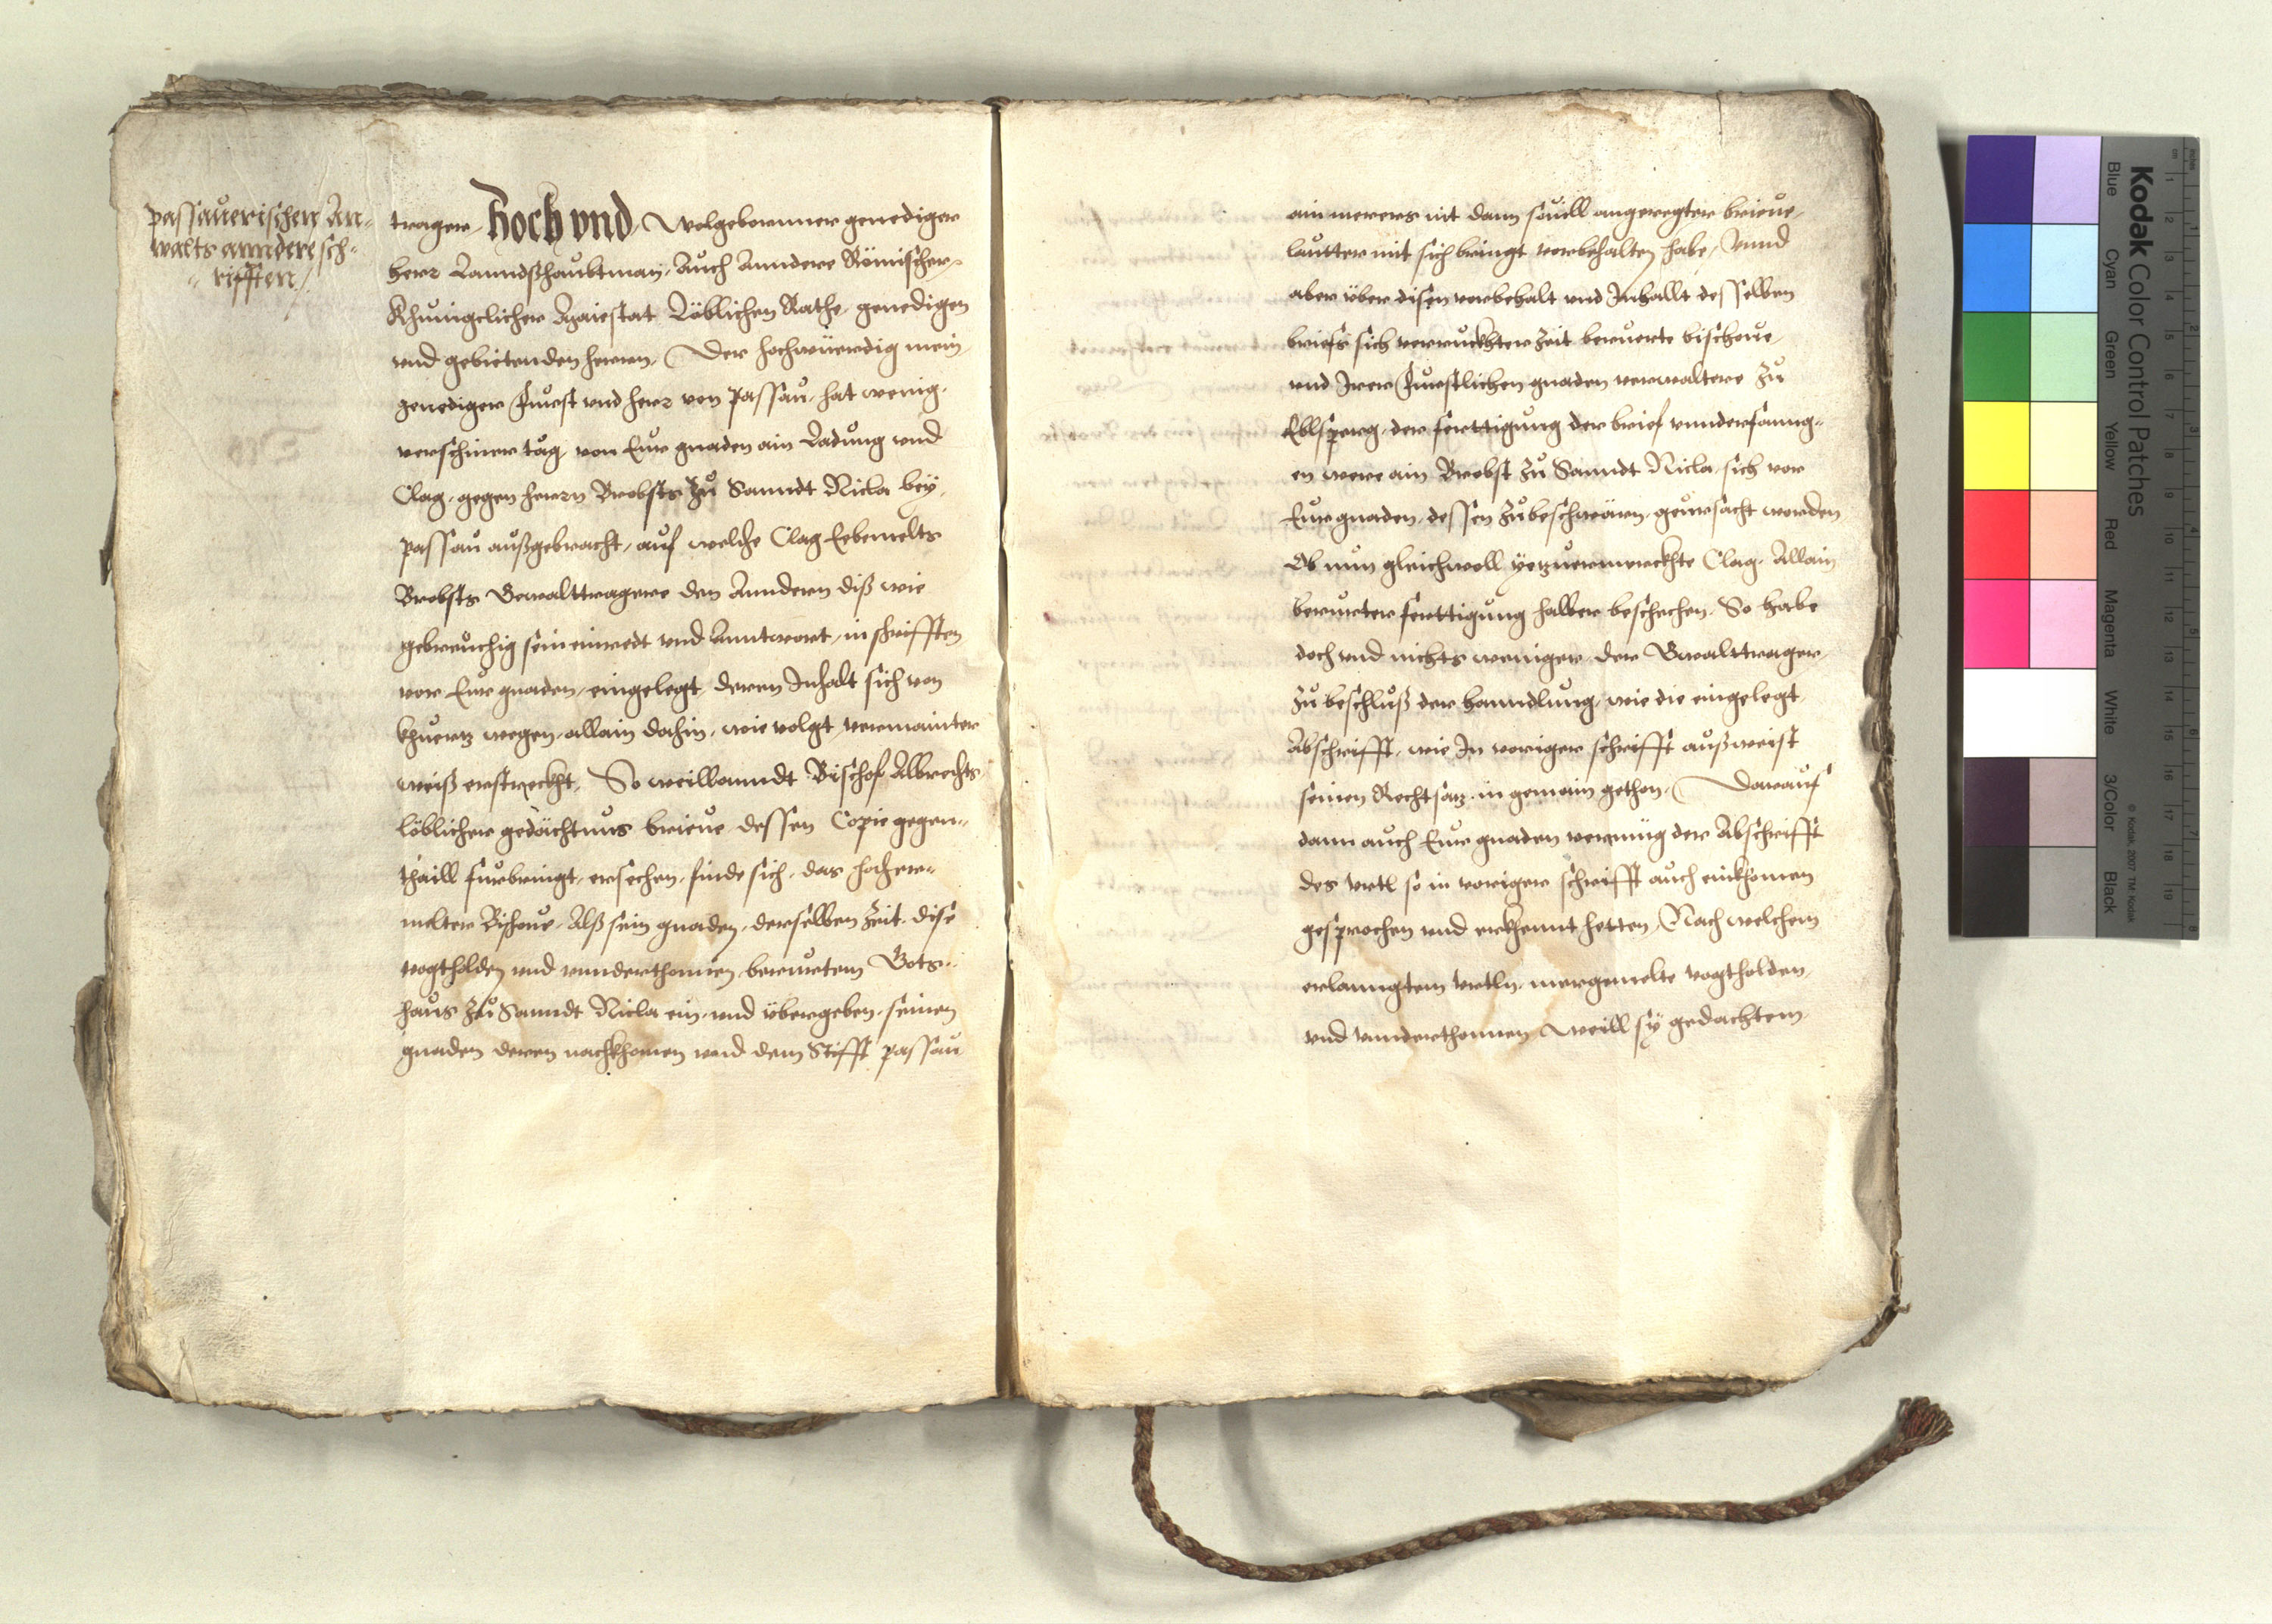 passauerischen An-
walts anndere sch-
rifften /
trager, Hoch vnd, Wolgebornner genediger
herr Lanndßhaubtman, Auch Anndere Römischer
Khuniglicher Maiestat Löblichen Räthe, genedigen
vnd gebietenden herrn, Der hochwürdig mein
genediger Fürst vnd herr von Passau, hat wenig
verschiner tag, von Eur gnaden ain Ladung vnd
Clag, gegen herrn Brobsts zu Sanndt Nicla bey
Passau außgebracht, auf welche Clag Eebemelts
Brobsts Gewalttragere den Anndern diß wie
gebreuchig sein einredt vnd Anntwort, in schrifften
vor Eur gnaden, eingelegt, deren Inhalt sich von
khurtz wegen, allain dohin, wie volgt, vermainter
weiß erstreckht, So weillanndt Bischof Albrechts
löblicher gedächtnus brieue dessen Copie gegen-
thaill fürbringt, ersechen, finde sich, das hocher-
melter Bischoue, Alß sein gnaden, derselben Zeit, dise
vogtholden vnd vnnderthonnen, berurtem Gots-
haus zu Sanndt Nicla ein, vnd übergeben, seinen
gnaden deren nachkhomen vnd dem Stifft Passau
ain merers nit dann souill angeregter brieue,
lautter mit sich bringt vorbehalten habe, Vnnd
aber über disen vorbehalt vnd Inhallt desselben
briefs sich verruckhter zeit berurte bischoue,
vnd Irer Fürstlichen gnaden verwaltere zu
Eblsperg, der ferttigung der brief vnnderfanng-
en were ain Brobst zu Sanndt Nicla, sich vor
Eur gnaden, dessen zubeschwärn, geursacht worden
Ob nun gleichwoll yetzuermerckhte Clag, Allain
berurter ferttigung halber beschechen, So habe
doch vnd nichts weniger, der Gwalttrager
zu beschluß der hanndlung, wie die eingelegt
Abschrifft, wie In voriger schrifft außweist
seinen Rechtsatz, in gemain gethon, Darauf
dann auch Eur gnaden vermüg der Abschrifft
des Vrtl so in voriger schrifft auch einkhomen
gesprochen vnd erkhennt hetten, Nach welchem
erlanngtem Vrtln, mergemelte vogtholden,
vnd vnnderthonnen Weill sy gedachtem,
Kodak Color Control Patches
Blue Cyan Green Yellow Red Magenta White 3/Color Black
© Kodak, 2007 TM: Kodak